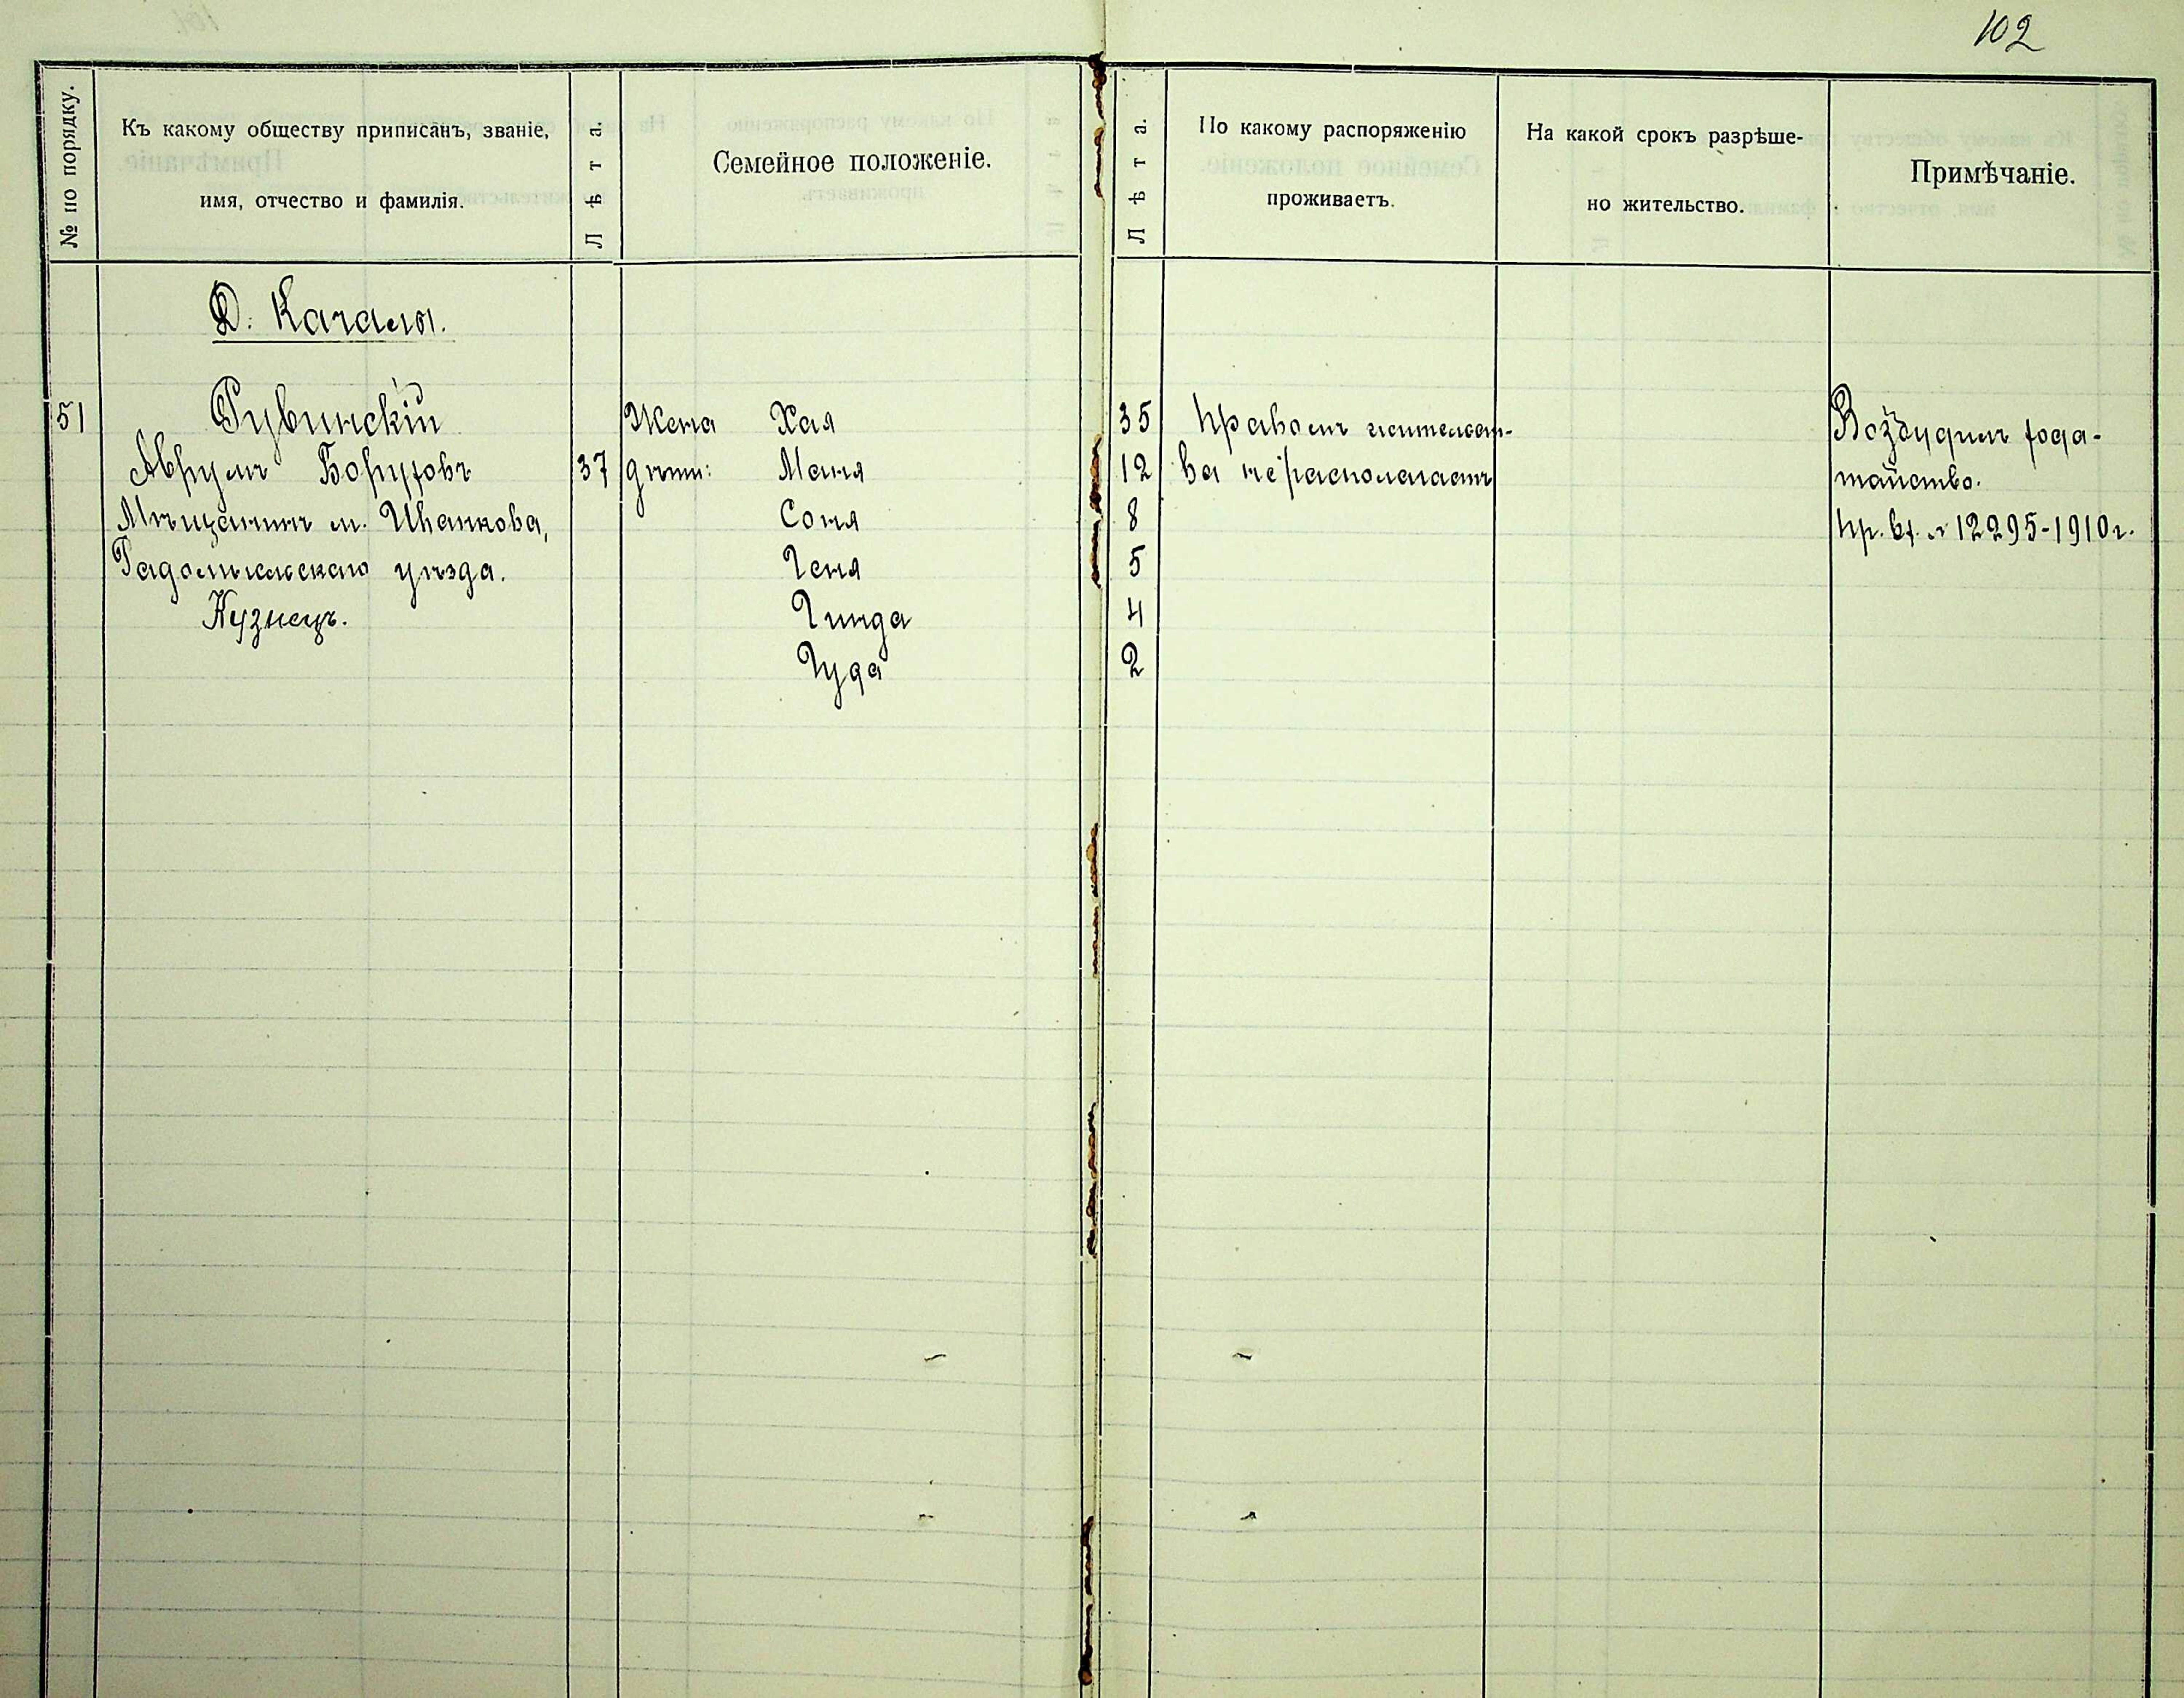 102
№ по порядку.
Къ какому обществу приписанъ, званіе,
имя, отчество и фамилія.
Лѣта
Семейное положеніе.
Лѣта.
По какому распоряженію
проживаетъ.
На какой срокъ разрѣше-
но жительство.
Примѣчаніе.
Д. Качалы.
51 Рувинскій Жена Хая 35 Правомъ жительст- Возбудилъ хода-
Аврумъ Боруховъ 37 дѣти: Маня 12 ва не располагаетъ тайство.
Мѣщанинъ м. Иванкова, Соня 8 пр. вх. № 12295-1910 г.
Радомысльскаго уѣзда. Геня 5
Кузнецъ. Гинда 4
Гуда 2